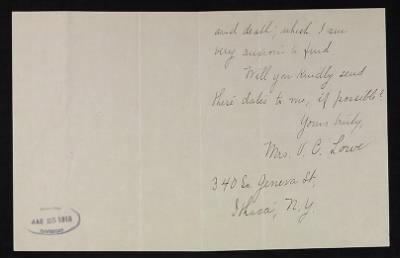 and death; which I am
very anxious to find
Will you kindly send
these dates to me, if possible?
Yours truly,
Mrs. V. C. Lowe
340 So. Geneva St,
Ithaca, N.Y.